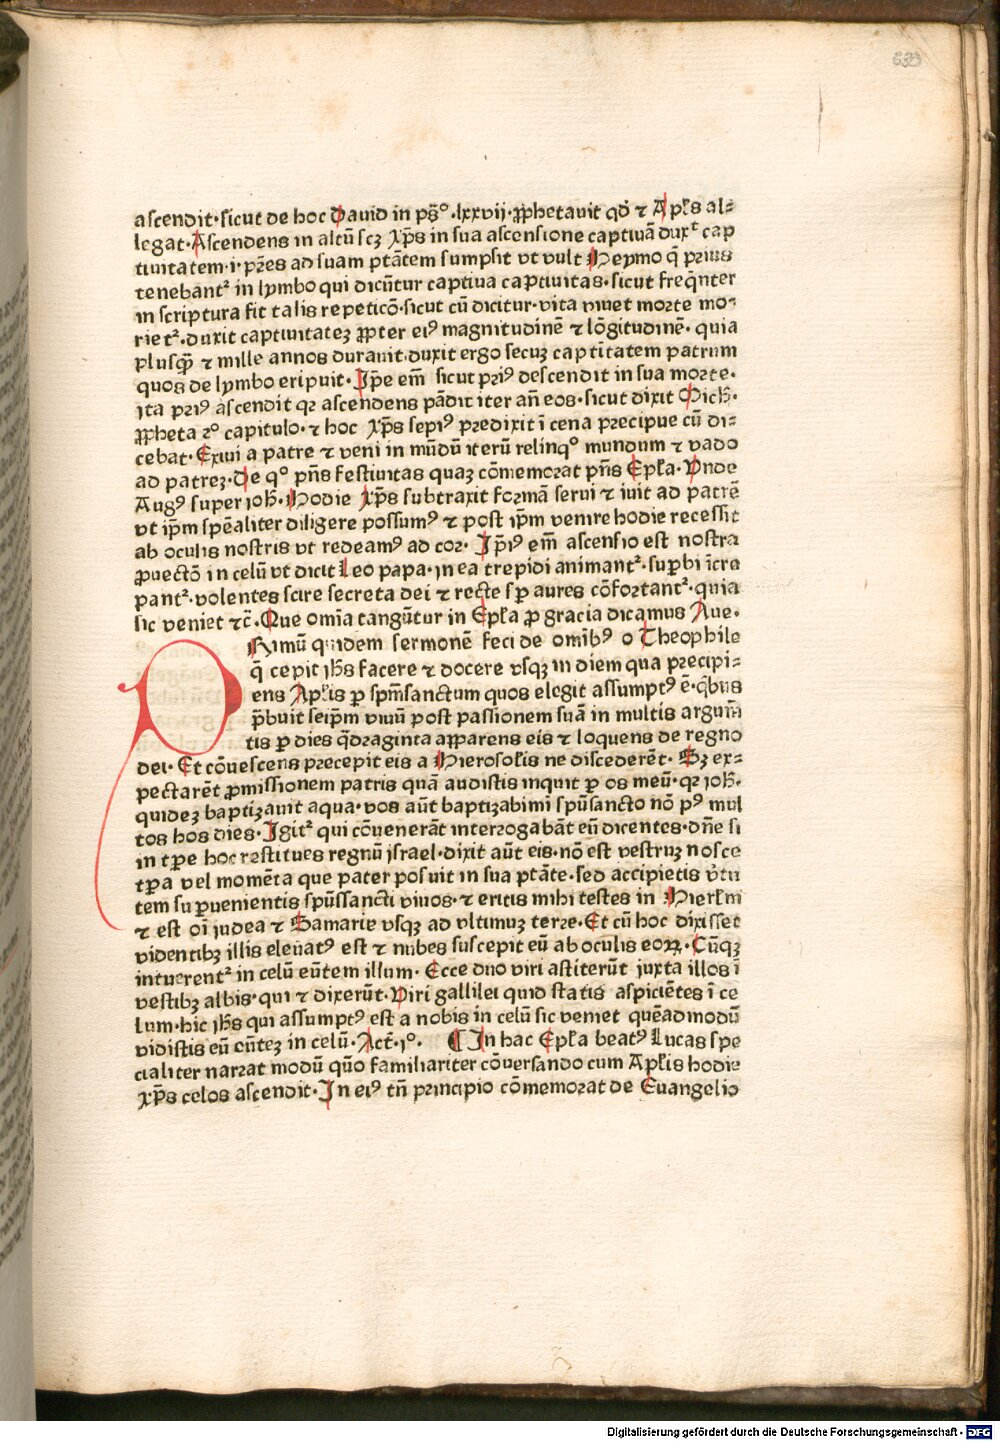 639
ascendit·sicut de hoc Dauid in pẜo·lxxvij·ꝓphetauit qđ ⁊ Apľs al⸗
legat·Ascendens in altū scꝫ Xp̄s in sua ascensione captiuā dux͛t cap
tiuitatem·i·pr̄es ad suam ptātem sumpsit vt vult Heymo q̄ prius
tenebant͛ in lymbo qui dicūtur captiua captiuitas·sicut freq̄nter
in scriptura fit talis repeticō·sicut cū dicitur·vita viuet morte mo⸗
riet͛·duxit captiuitateꝫ ꝓpter eiꝰ magnitudinē ⁊ lōgitudinē·quia
plusq̄ ⁊ mille annos durauit·duxit ergo secuꝫ captītatem patrum
quos de lymbo eripuit·Ip̄e em̄ sicut priꝰ descendit in sua morte·
ita priꝰ ascendit qꝛ ascendens pādit iter an̄ eos·sicut dixit Mich̄·
ꝓpheta 2º capitulo·⁊ hoc Xp̄s sepiꝰ predixit ī cena precipue cū di⸗
cebat·Exiui a patre ⁊ veni in mūdū iterū relinqº mundum ⁊ vado
ad patreꝫ·De qº pn̄s festiuitas quaꝫ cōmemorat pn̄s Epľa·Vnde
Augꝰ super ioh̄·Hodie Xp̄s subtraxit formā serui ⁊ iuit ad patrē
vt ip̄m spēaliter diligere possumꝰ ⁊ post ip̄m venire hodie recessit
ab oculis nostris vt redeamꝰ ad cor·Ip̄iꝰ em̄ ascensio est nostra
ꝓuectō in celū vt dicit Leo papa·in ea trepidi animant͛·suꝑbi īcre
pant͛·volentes scire secreta dei ⁊ recte sꝑ aures cōfortant͛·quia
sic veniet ⁊c̄·Que omīa tangūtur in Epľa ꝓ gracia dicamus Aue·
PRimū quidem sermonē feci de omībꝰ o Theophile
q̄ cepit ih̄s facere ⁊ docere vsqꝫ in diem qua precipi⸗
ens Apľis ꝑ spm̄sanctum quos elegit assumptꝰ ē·q̄bus
p̄buit seip̄m viuū post passionem suā in multis argum̄
tis ꝑ dies q̄draginta apparens eis ⁊ loquens de regno
dei·Et cōuescens precepit eis a Hierosolis ne discederēt·Sꝫ ex⸗
pectarēt ꝓmissionem patris quā audistis inquit ꝑ os meū·qꝛ ioh̄·
quideꝫ baptiꝫauit aqua·vos aūt baptiꝫabimī spūsancto nō pꝰ mul
tos hos dies·Igit͛ qui cōuenerāt interrogabāt eū dicentes·dn̄e si
in tꝑe hoc restitues regnū israel·dixit aūt eis·nō est vestruꝫ nosce
tꝑa vel momēta que pater posuit in sua ptāte·sed accipietis v̄tu
tem suꝑuenientis spūssancti viuos·⁊ eritis mihi testes in Hierľm
⁊ est oī iudea ⁊ Samarie vsqꝫ ad vltimuꝫ terre·Et cū hoc dixisset
videntibꝫ illis eleuatꝰ est ⁊ nubes suscepit eū ab oculis eoꝝ·Cūqꝫ
intuerent͛ in celū eūtem illum·Ecce duo viri astiterūt iuxta illos ī
vestibꝫ albis·qui ⁊ dixerūt·Viri gallilei quid statis aspiciētes ī ce
lum·hic ih̄s qui assumptꝰ est a nobis in celū sic veniet quēadmodū
vidistis eū eūteꝫ in celū·Act̄·1º· ¶ In hac Epľa beatꝰ Lucas spe
cialiter narrat modū quō familiariter cōuersando cum Apľis hodie
Xp̄s celos ascendit·In eiꝰ tn̄ principio cōmemorat de Euangelio
Digitalisierung gefördert durch die Deutsche Forschungsgemeinschaft - DFG